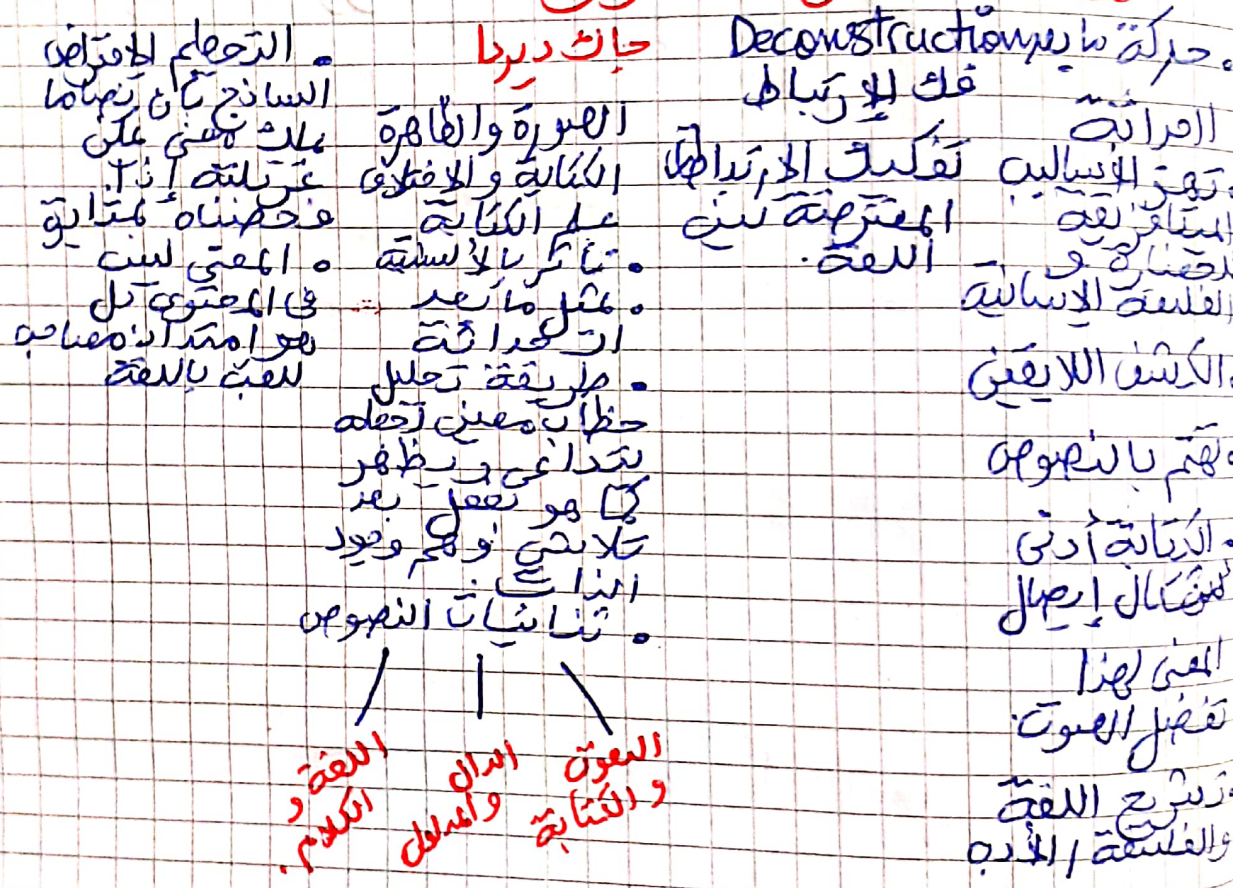 . حركة ما بعد
الحداثة
. تهتز الأساليب
الميتافيزيقية
للحضارة و
الفلسفة الإنسانية
. الكشف اللايقيني
. تهتم بالنصوص
. الكتابة أدنى
أشكال إيصال
المعنى لهذا
تفضل الصوت.
. تشريح اللغة
والفلسفة / الأدب
Deconstruction
فك الارتباط
تفكيك الارتباط
المفترضة بين
اللغة.
جاك ديردا
الصورة والظاهرة
الكتابة و الاختلاف
علم الكتابة
. تأثر بالألسنية
. يمثل ما بعد
الحداثة
. طريقة تحليل
خطاب معين تجعله
يتداعى و يظهر
كما هو تفعل بعد
تلاشي وهم وجود
الذات.
. ثنائيات النصوص
الصوت
والكتابة
الدال
والمدلول
اللغة و
الكلام.
. التحطيم الافتراض
الساذج بأن نصا ما
يملك معنى يمكن
غربلته إذا
فحصناه
. المعنى ليس
في المحتوى بل
هو امتداد
للعب باللغة